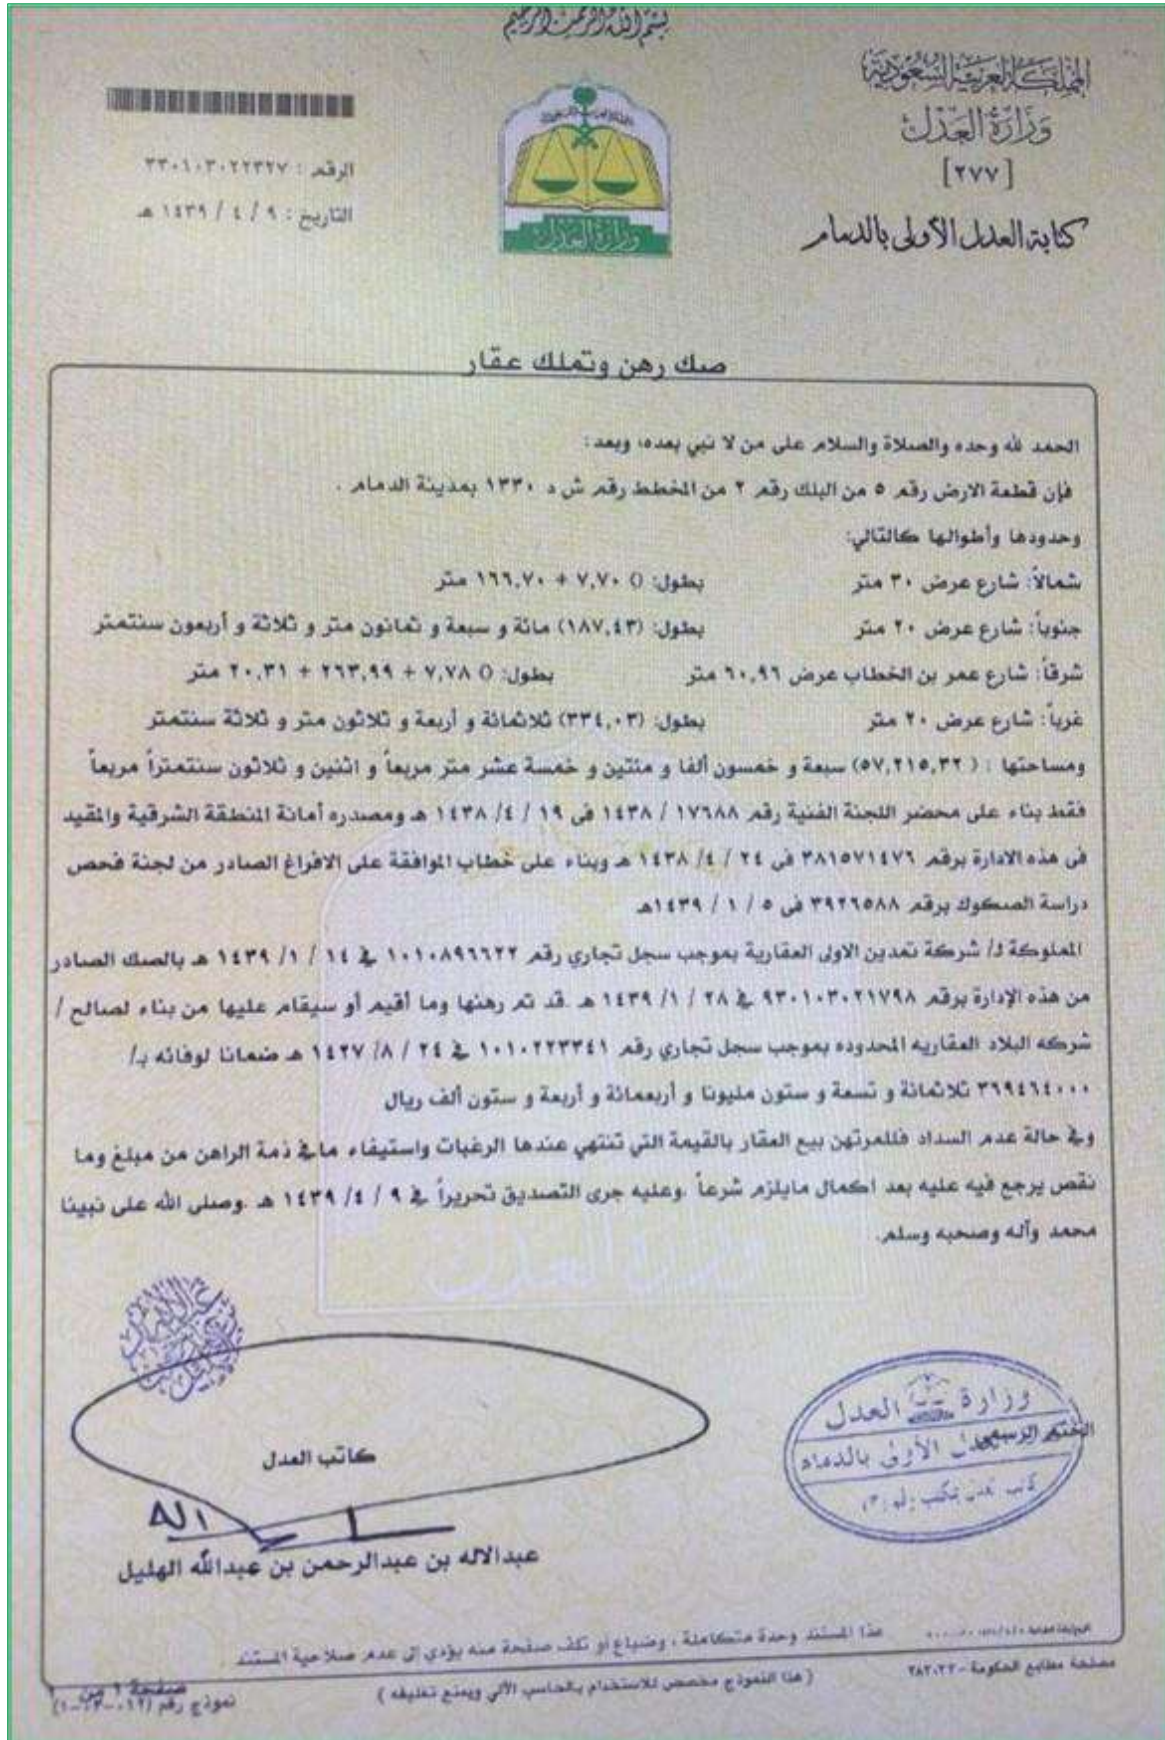 بسم الله الرحمن الرحيم
المملكة العربية السعودية
وزارة العدل
[٢٧٧]
كتابة العدل الأولى بالدمام
الرقم : ٣٣٠١٠٣٠٢٢٣٢٧
التاريخ : ٩ / ٤ / ١٤٣٩ هـ
وزارة العدل
صك رهن وتملك عقار
الحمد لله وحده والصلاة والسلام على من لا نبي بعده، وبعد :
فإن قطعة الارض رقم ٥ من البلك رقم ٢ من المخطط رقم ش د ١٣٣٠ بمدينة الدمام .
وحدودها وأطوالها كالتالي:
شمالاً: شارع عرض ٣٠ متر بطول: () ٧,٧٠ + ١٦٦,٧٠ متر
جنوباً: شارع عرض ٢٠ متر بطول: (١٨٧,٤٣) مائة و سبعة و ثمانون متر و ثلاثة و أربعون سنتمتر
شرقاً: شارع عمر بن الخطاب عرض ٦٠,٩٦ متر بطول: () ٧,٧٨ + ٢٦٣,٩٩ + ٢٠,٣١ متر
غرباً: شارع عرض ٢٠ متر بطول: (٣٣٤,٠٣) ثلاثمائة و أربعة و ثلاثون متر و ثلاثة سنتمتر
ومساحتها : (٥٧,٢١٥,٣٢) سبعة و خمسون ألفا و مئتين و خمسة عشر متر مربعاً و اثنين و ثلاثون سنتمتراً مربعاً
فقط بناء على محضر اللجنة الفنية رقم ١٧٦٨٨ / ١٤٣٨ فى ١٩ / ٤/ ١٤٣٨ هـ ومصدره أمانة المنطقة الشرقية والمقيد
فى هذه الادارة برقم ٣٨١٥٧١٤٧٦ فى ٢٤ / ٤/ ١٤٣٨ هـ وبناء على خطاب الموافقة على الافراغ الصادر من لجنة فحص
دراسة الصكوك برقم ٣٩٢٦٥٨٨ فى ٥ / ١ / ١٤٣٩هـ
المملوكة لـ/ شركة تمدين الاولى العقارية بموجب سجل تجاري رقم ١٠١٠٨٩٦٦٢٢ في ١٤ / ١/ ١٤٣٩ هـ بالصك الصادر
من هذه الإدارة برقم ٩٣٠١٠٣٠٢١٧٩٨ في ٢٨ / ١/ ١٤٣٩ هـ .قد تم رهنها وما أقيم أو سيقام عليها من بناء لصالح /
شركه البلاد العقاريه المحدوده بموجب سجل تجاري رقم ١٠١٠٢٢٣٣٤١ في ٢٤ / ٨/ ١٤٢٧ هـ ضمانا لوفائه بـ/
٣٦٩٤٦٤٠٠٠ ثلاثمائة و تسعة و ستون مليونا و أربعمائة و أربعة و ستون ألف ريال
وفي حالة عدم السداد فللمرتهن بيع العقار بالقيمة التي تنتهي عندها الرغبات واستيفاء مافي ذمة الراهن من مبلغ وما
نقص يرجع فيه عليه بعد اكمال مايلزم شرعاً .وعليه جرى التصديق تحريراً في ٩ / ٤/ ١٤٣٩ هـ .وصلى الله على نبينا
محمد وآله وصحبه وسلم.
وزارة العدل
الختم الرسمي
وزارة العدل
العدل الأولى بالدمام
كاتب العدل
عبدالاله بن عبدالرحمن بن عبدالله الهليل
هذا المستند وحدة متكاملة ، وضياع أو تلف صفحة منه يؤدي إلى عدم صلاحية المستند
مصلحة مطابع الحكومة - ٣٨٢٠٢٣
( هذا النموذج مخصص للاستخدام بالحاسب الآلي ويمنع تغليفه )
صفحة ١ من
نموذج رقم (١٢-٠٣-٠١)